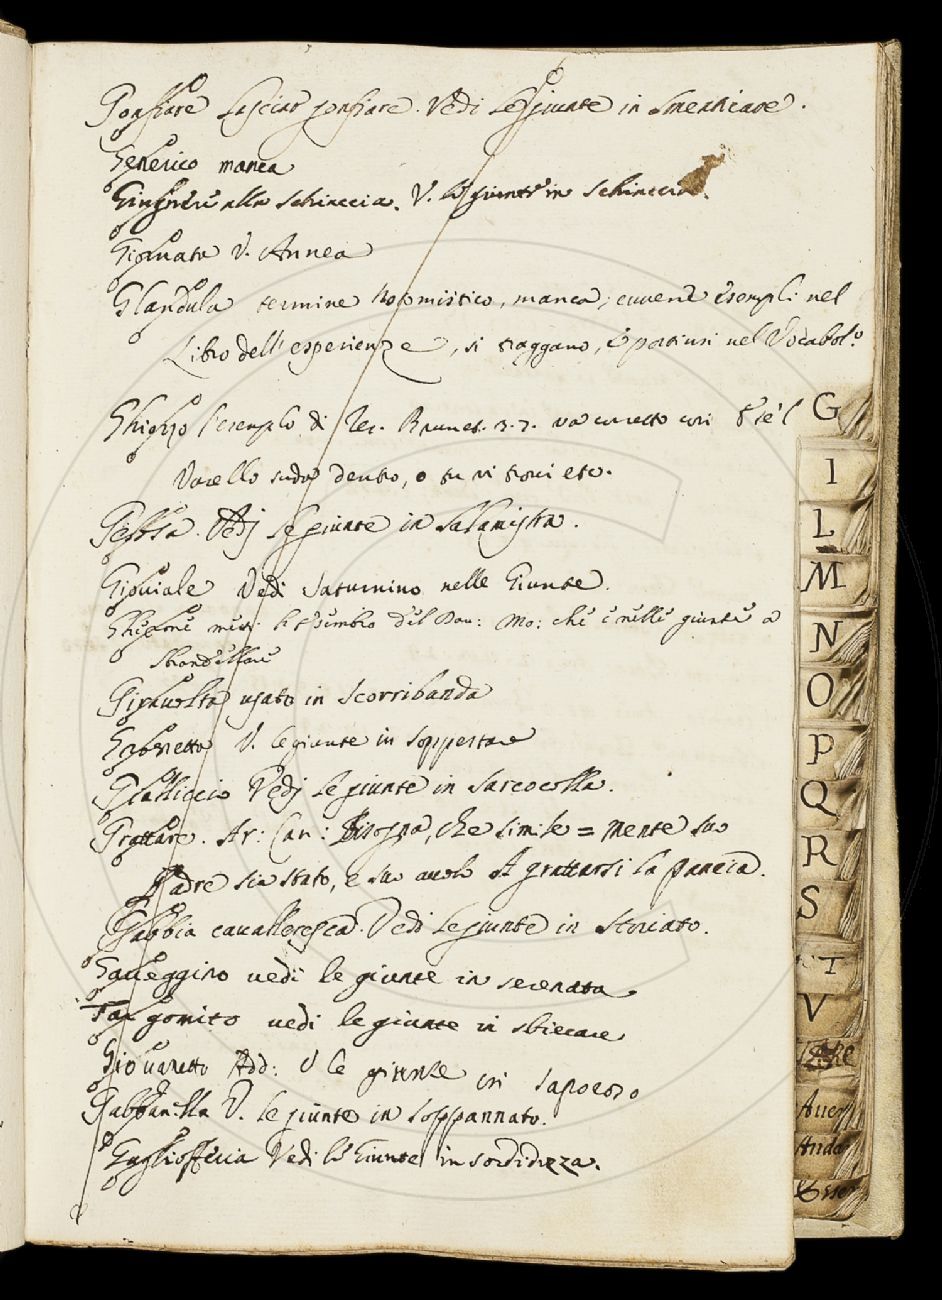 Gonfiare Lasciar gonfiare. Vedi le giunte in Smenticare.
Generico manca
alla schiaccia. V. le giunte in Schiaccia.
Giornata V. Annea
Glandula termine notomistico, manca, evvene esempli nel
Libro dell'esperienze, si traggano, e portinsi nel Vocabol.º
Ghiozzo l'esemplo di Tes. Brunet. 3.7. va corretto cosi Se'l
Vasello suda dentro, o tu vi trovi etc.
Vedj le giunte in Salamistra.
Gioviale Vedi Saturnino nelle Giunte.
che è nelle giunte a
Giravolta usato in Scorribanda
Gabbretto V. le giunte in soppestare
Vedj le giunte in Sarcocolla.
Grattare. Ar: Can: Bisogna, che simile = mente suo
Padre sia stato, e suo avolo A grattarsi la pancia.
Gabbia cavalleresca. Vedi le giunte in Storiato.
Gaveggino vedi le giunte in serenata
Far gomito vedi le giunte in sbiecare
Giovanetto Add: V le giunte in saporoso
Gabbanella V. le giunte in soppannato.
Gaglioffería Vedi le Giunte in sordidezza.
G
I
L
M
N
O
P
Q
R
S
T
V
Aver
Andar
Esser